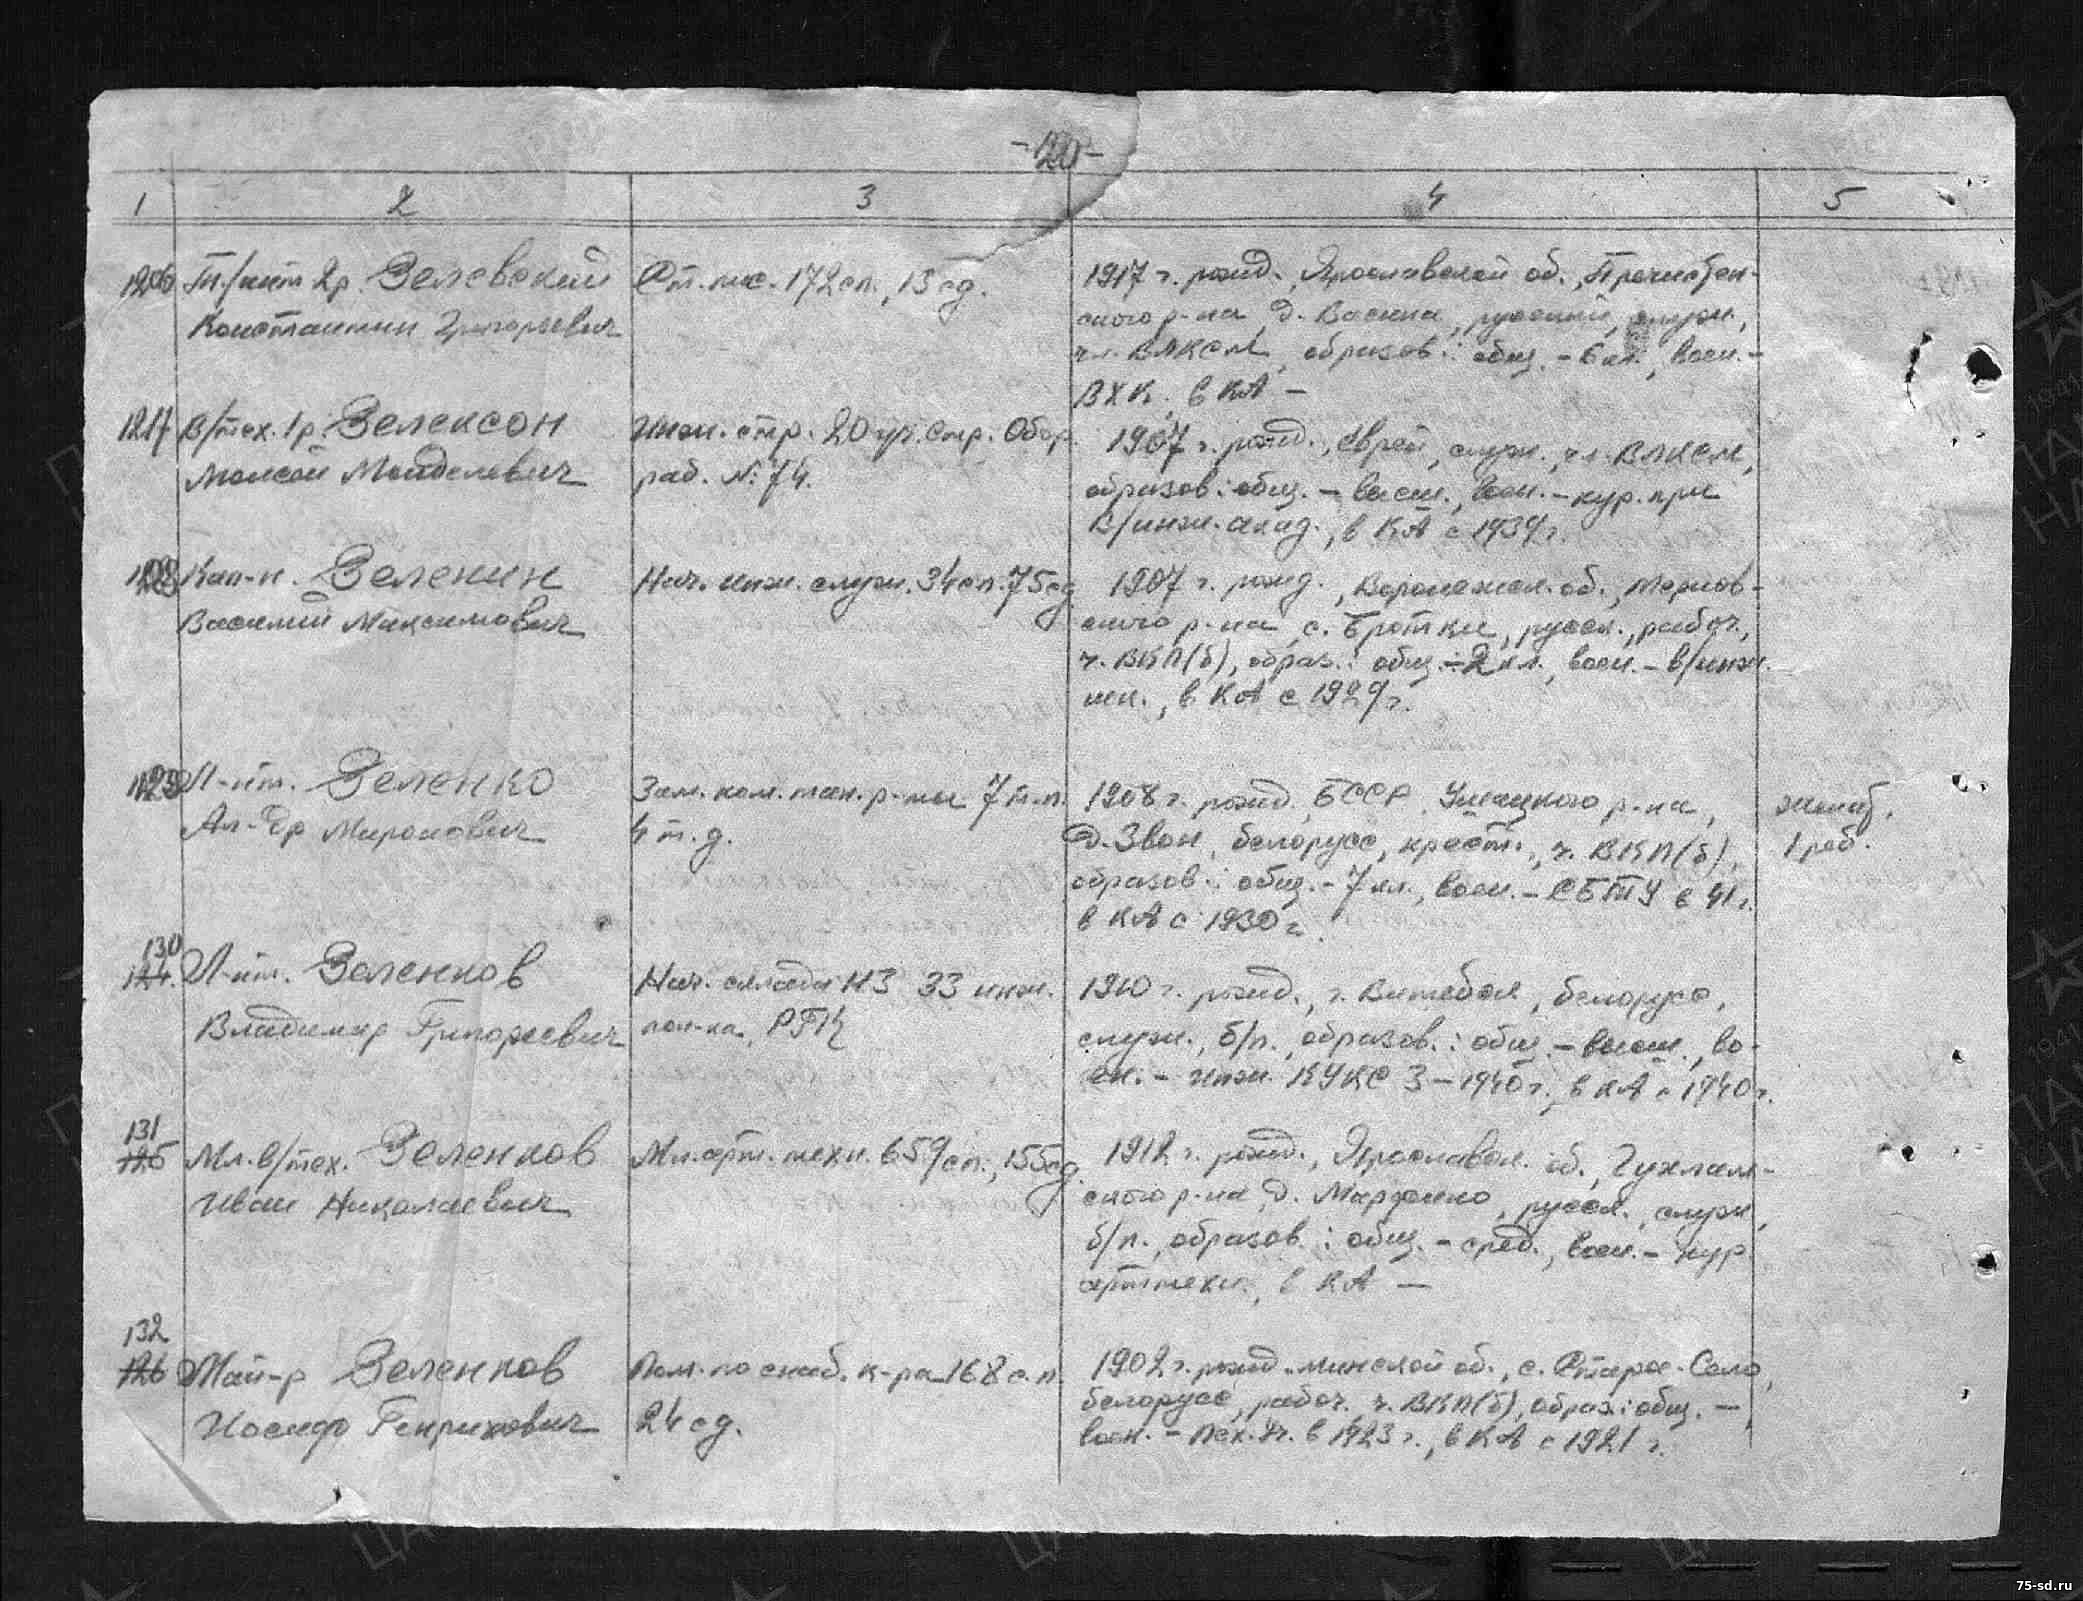 -20-
1 2 3 4 5
Т/инт 2р. Зелевский
Константин Григорьевич
172 сп., 13 сд.
1917 г. рожд., Ярославской об.,
ского р-на, д. Васина, русский, служ.,
чл. ВЛКСМ, образов.: общ. - 6 кл., воен. -
ВХК, в КА -
В/тех. 1р. Зелексон
Моисей Менделевич
Инж. стр. 20 уч. стр. Обор.
раб. № 74.
1907 г. рожд., еврей, служ., чл. ВЛКСМ,
образов.: общ. - высш., воен. - кур. при
В/инж. акад., в КА с 1939 г.
Кап-н. Зеленин
Василий Максимович
Нач. инж. служ. 34 сп. 75 сд
1907 г. рожд., Воронежск. об.,
ского р-на, с. Бротки, русск., рабоч.,
ч. ВКП(б), образ.: общ. - 2 кл., воен. - в/инж.
шк., в КА с 1929 г.
Л-нт. Зеленко
Ал-др Миронович
Зам. ком. тан. р-ты 7 т.п.
4 т.д.
1908 г. рожд. БССР, Ушацкого р-на,
д. Звон, белорусс, крест., ч. ВКП(б),
образов.: общ. - 7 кл., воен. - СБТУ в 41 г.
в КА с 1930 г.
женат,
1 реб.
130
124. Л-нт. Зеленков
Владимир Григорьевич
Нач. склада НЗ 33 инж.
пол-ка, РГК
1910 г. рожд., г. Витебск, белорусс,
служ., б/п., образов.: общ. - высш., во-
ен. - инж. КУКС З - 1940 г., в КА с 1940 г.
131
125 Мл. в/тех. Зеленков
Иван Николаевич
Мл. арт. техн. 659 сп., 155 сд.
1912 г. рожд., Ярославск. об., Чухлом-
ского р-на, д. Марфино, русск., служ.,
б/п., образов.: общ. - сред., воен. - кур.
арттехн., в КА -
132
126 Май-р Зеленков
Иосиф Генрихович
Пом. по снаб. к-ра 168 с.п.
24 сд.
1902 г. рожд. Минской об., с. Старое-Село,
белорусс, рабоч. ч. ВКП(б), образ.: общ. -,
воен. - Пех. Уч. в 1923 г., в КА с 1921 г.
75-sd.ru